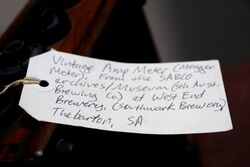 Vintage Amp Meter (Meager
Meter). From the SABCO
archives/Museum (Sth Aust.
Brewing Co) at West End
Brewery, (Southwark Brewery)
Thebarton, SA